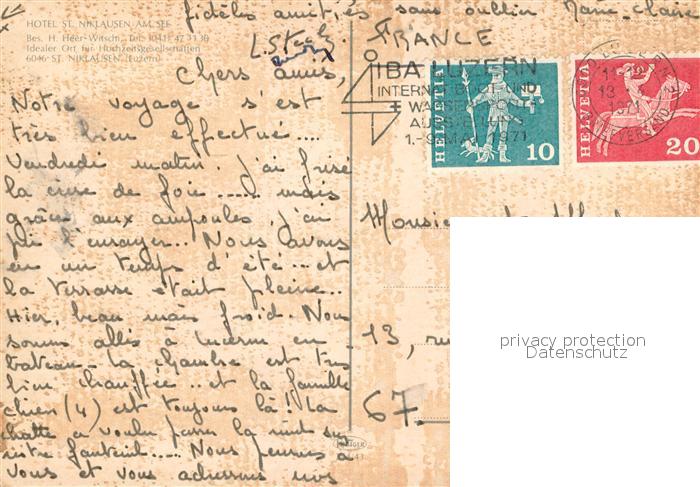 fidèles amitiés sans oublier Marie-Claire
HOTEL ST. NIKLAUSEN AM SEE
Bes. H. Heer-Witsch, Tel. (041) 47 31 30
Idealer Ort für Hochzeitsgesellschaften
6046 ST. NIKLAUSEN (Luzern)
Chers amis,
Notre voyage s'est
très bien effectué...
Vendredi matin, j'ai frisé
la crise de foie ...... mais
grâce aux ampoules, j'ai
pu l'enrayer... Nous avons
eu un temps d'été... et
la terrasse était pleine..
Hier, beau mais froid. Nous
sommes allés à Lucerne en
bateau.. La chambre est très
bien chauffée .. et la famille
chien (4) est toujours là! La
chatte a voulu passer la nuit sur
notre fauteuil..... Nous pensons à
vous et vous adressons nos
FRANCE
IBA LUZERN
INTERNAT. BOOT- UND
WASSERSPORT
AUSSTELLUNG
1.-9. MAI 1971
HELVETIA
10
HELVETIA
20
11-12
13
1971
Monsieur
13, ru
67.
privacy protection
Datenschutz